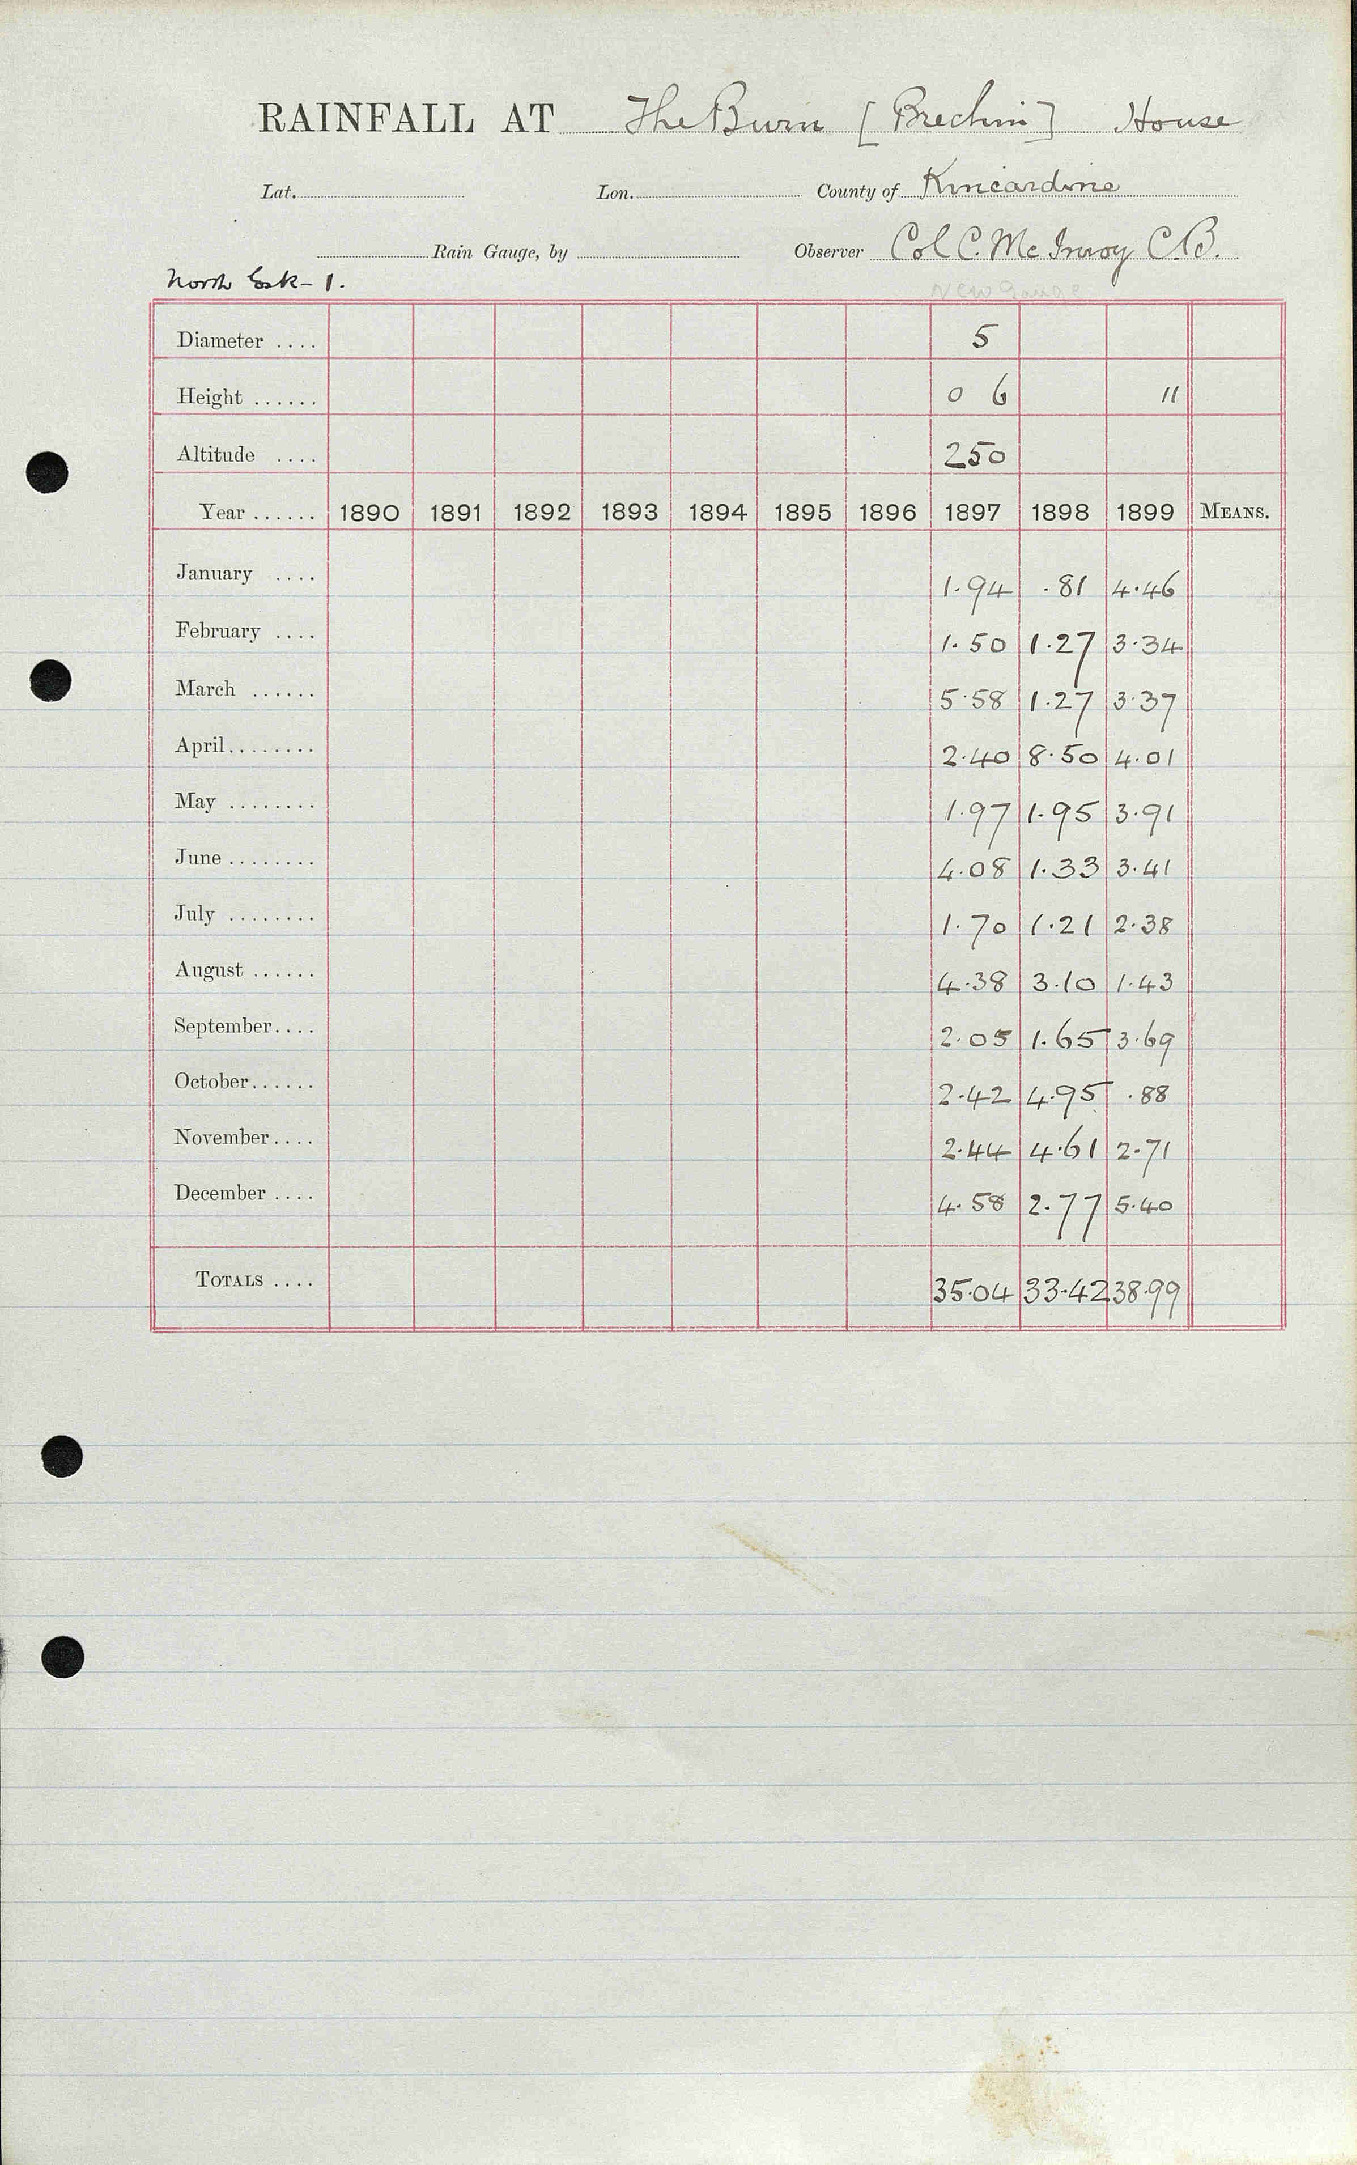 RAINFALL AT The Burn [Brechin] House
Lat. Lon. County of Kincardine
Rain Gauge, by Observer Col C. McInroy C.B.
North Esk - 1.
New Gauge
Diameter .... 5
Height ...... 0 6 11
Altitude .... 250
Year ...... 1890 1891 1892 1893 1894 1895 1896 1897 1898 1899 MEANS.
January .... 1.94 .81 4.46
February .... 1.50 1.27 3.34
March ...... 5.58 1.27 3.37
April........ 2.40 8.50 4.01
May ........ 1.97 1.95 3.91
June ........ 4.08 1.33 3.41
July ........ 1.70 1.21 2.38
August ...... 4.38 3.10 1.43
September.... 2.05 1.65 3.69
October...... 2.42 4.95 .88
November.... 2.44 4.61 2.71
December .... 4.58 2.77 5.40
TOTALS .... 35.04 33.42 38.99